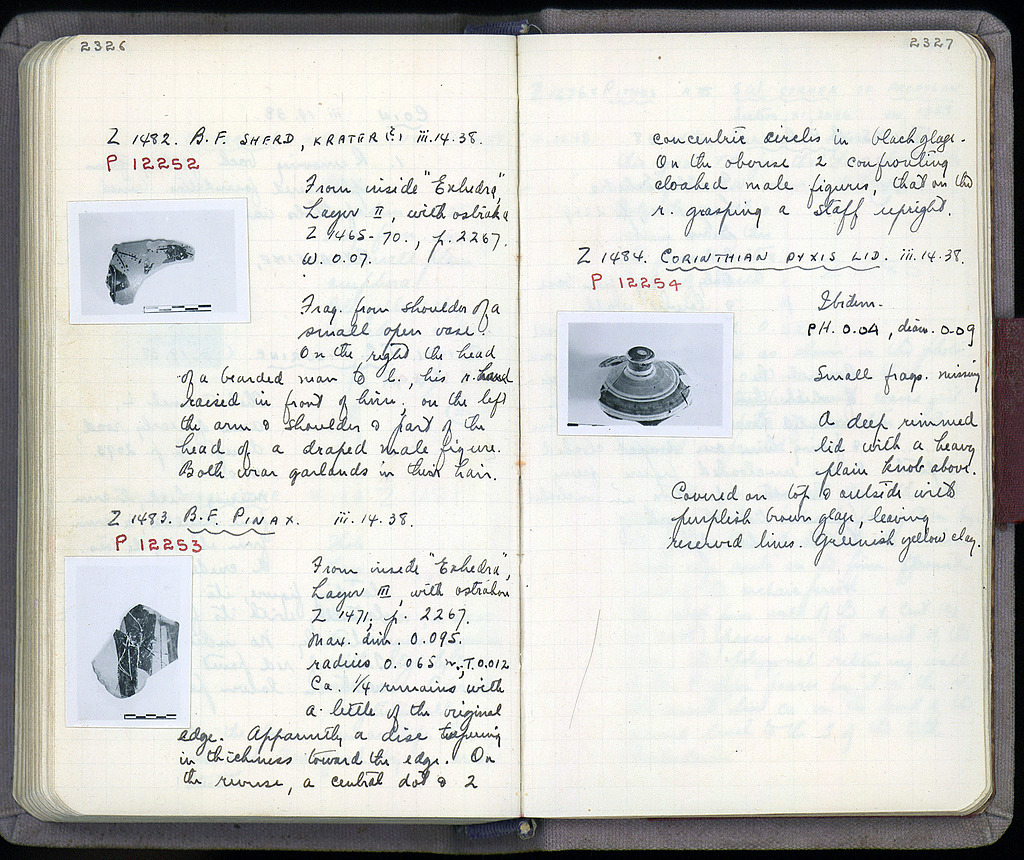 2326
Z 1482. B.F. SHERD, KRATER iii.14.38.
P 12252
From inside "Exhedra",
Layer II, with ostraka
Z 1465-70., p. 2267.
W. 0.07.
Frag. from shoulder of a
small open vase.
On the right the head
of a bearded man to l., his r. hand
raised in front of him; on the left
the arm & shoulder & part of the
head of a draped male figure.
Both wear garlands in their hair.
Z 1483. B.F. PINAX. iii.14.38.
P 12253
From inside "Exhedra",
Layer III, with ostrakon
Z 1471, p. 2267.
Max. dim. 0.095.
radius 0.065 T. 0.012
Ca. 1/4 remains with
a little of the original
edge. Apparently a disc tapering
in thickness toward the edge. On
the reverse, a central dot & 2
2327
concentric circles in black glaze.
On the obverse 2 confronting
cloaked male figures, that on the
r. grasping a staff upright.
Z 1484. CORINTHIAN PYXIS LID. iii.14.38.
P 12254
Ibidem.
PH. 0.04, diam. 0.09
Small frags. missing
A deep rimmed
lid with a heavy
plain knob above.
Covered on top & outside with
purplish brown glaze, leaving
reserved lines. Greenish yellow clay.